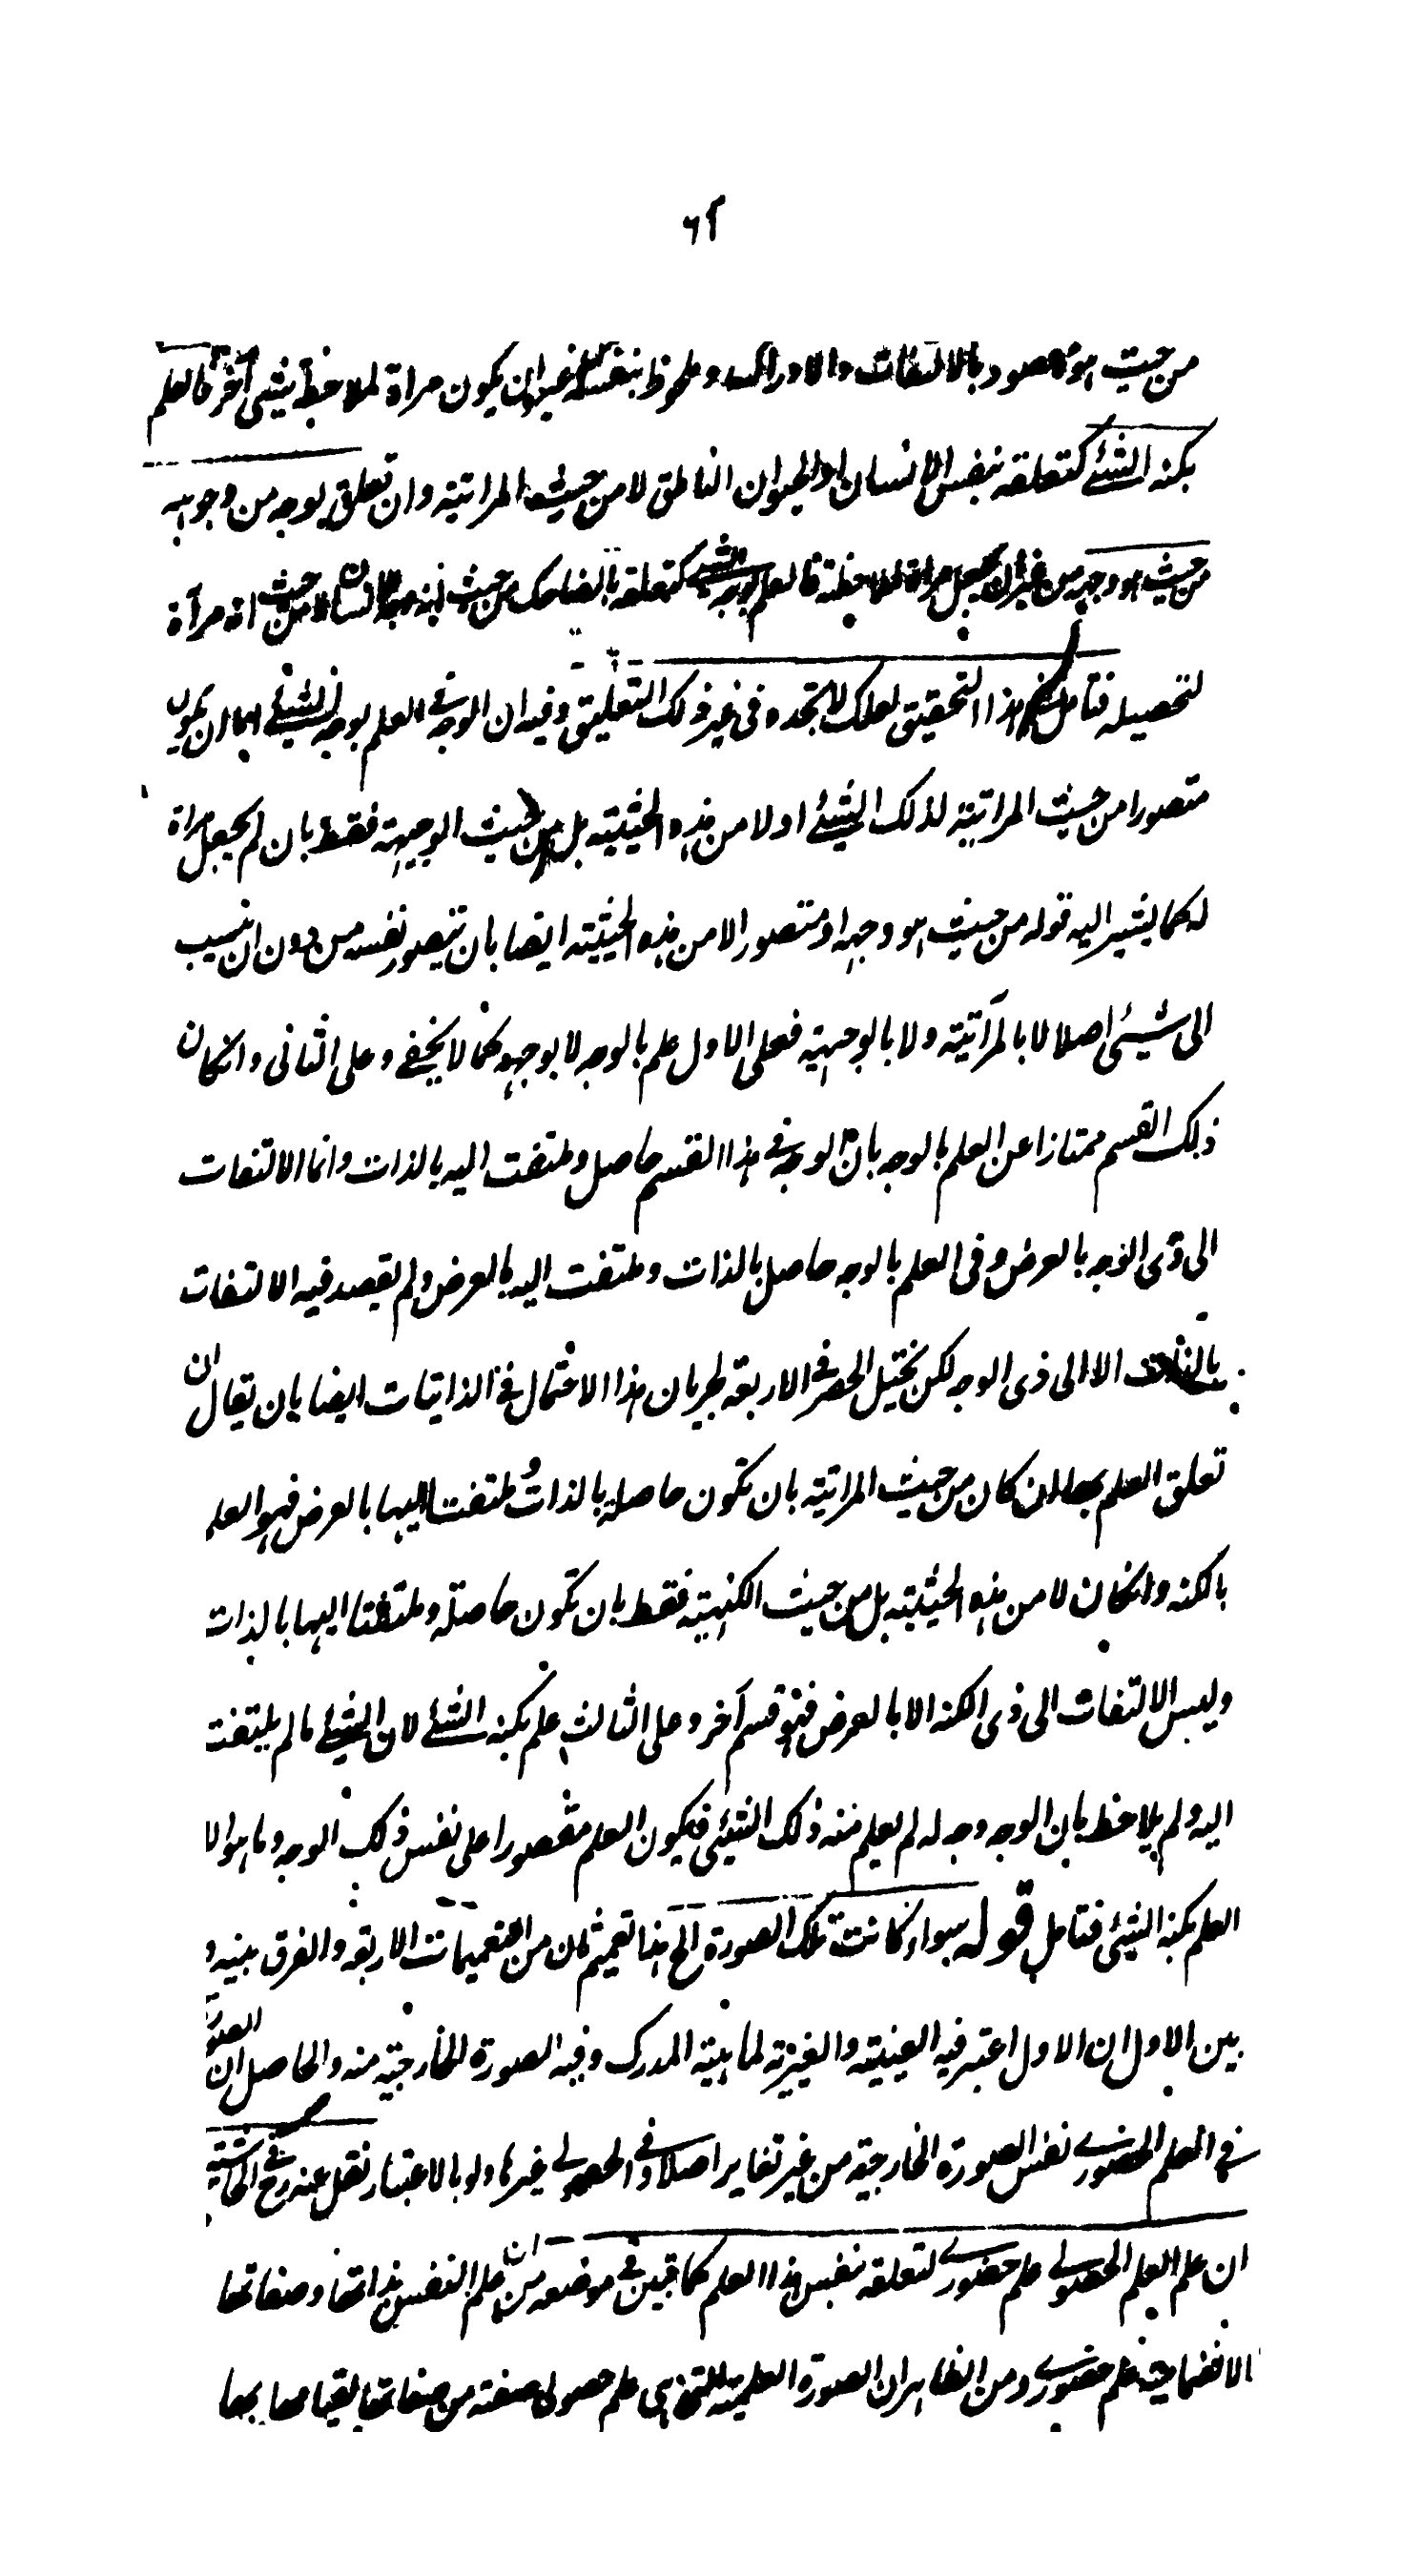 ٦٢
من حيث هو مقصود بالالتفات والادراك وملحوظ بنفسه من غير ان يكون مراة لملاحظة شيئ آخر فالعلم
بكنه الشئے كتعلقه بنفس الانسان او الحيوان الناطق لا من حيث المراتية وان تعلق بوجه من وجوهه
من حيث هو وجهه من غير ان يجعل مراة لملاحظته فالعلم بوجه الشئے كتعلقه بالضاحك من حيث انه وجه الانسان لا من حيث انه مرآة
لتحصيله فتامل فى هذا التحقيق لعلك لا تجده فى غير ذلك التعليق وفيه ان الوجه فے العلم بوجه الشئے اما ان يكون
متصورا من حيث المراتية لذلك الشيئے او لا من هذه الحيثية بل من حيث الوجهية فقط بان لم يجعل مراة
له كما يشير اليه قوله من حيث هو وجهه او متصورا لا من هذه الحيثية ايضا بان تتصور نفسه من دون ان ينسب
الى شيئى اصلا لا بالمرآتية ولا بالوجهية فعلى الاول علم بالوجه لا بوجهه كما لا يخفے وعلى الثانى وانكان
ذلك القسم ممتازا عن العلم بالوجه بان الوجه فے هذا القسم حاصل وملتفت اليه بالذات وانما الالتفات
الى ذى الوجه بالعرض وفى العلم بالوجه حاصل بالذات وملتفت اليه بالعرض ولم يقصد فيه الالتفات
بالذات الا الى ذى الوجه لكن يختل الحصر فے الاربعة لجريان هذا الاحتمال فے الذاتيات ايضا بان يقال ان
تعلق العلم بها ان كان من حيث المراتية بان تكون حاصلة بالذات وملتفت اليها بالعرض فهو العلم
بالكنه وانكان لا من هذه الحيثية بل من حيث الكنهية فقط بان تكون حاصلة وملتفتا اليها بالذات
وليس الالتفات الى ذى الكنه الا بالعرض فهو قسم آخر وعلى الثالث علم بكنه الشئے لان الشيئے ما لم يلتفت
اليه ولم يلاحظ بان الوجه وجه له لم يعلم منه ذلك الشيئى فيكون العلم مقصورا على نفس ذلك الوجه وما هو الا
العلم بكنه الشيئى فتامل قوله سواء كانت تلك الصورة الخ هذا تعميم ثان من التعميمات الاربعة والفرق بينه و
بين الاول ان الاول اعتبر فيه العينية والغيرية لماهية المدرك وفيه الصورة الخارجية منه والحاصل ان الصورة
فے العلم الحضورے نفس الصورة الخارجية من غير تغاير اصلا وفے الحصولے غيرها ولو بالاعتبار نقل عنه رح فے الحاشية
ان علم العلم الحصولے علم حضورے لتعلقه بنفس هذا العلم كما تبين فے موضعه من ان علم النفس بذاتها وصفاتها
الانضمامية علم حضورے ومن الظاهر ان الصورة العلمية التى هى علم حصولى صفة من صفاتها لقيامها بها